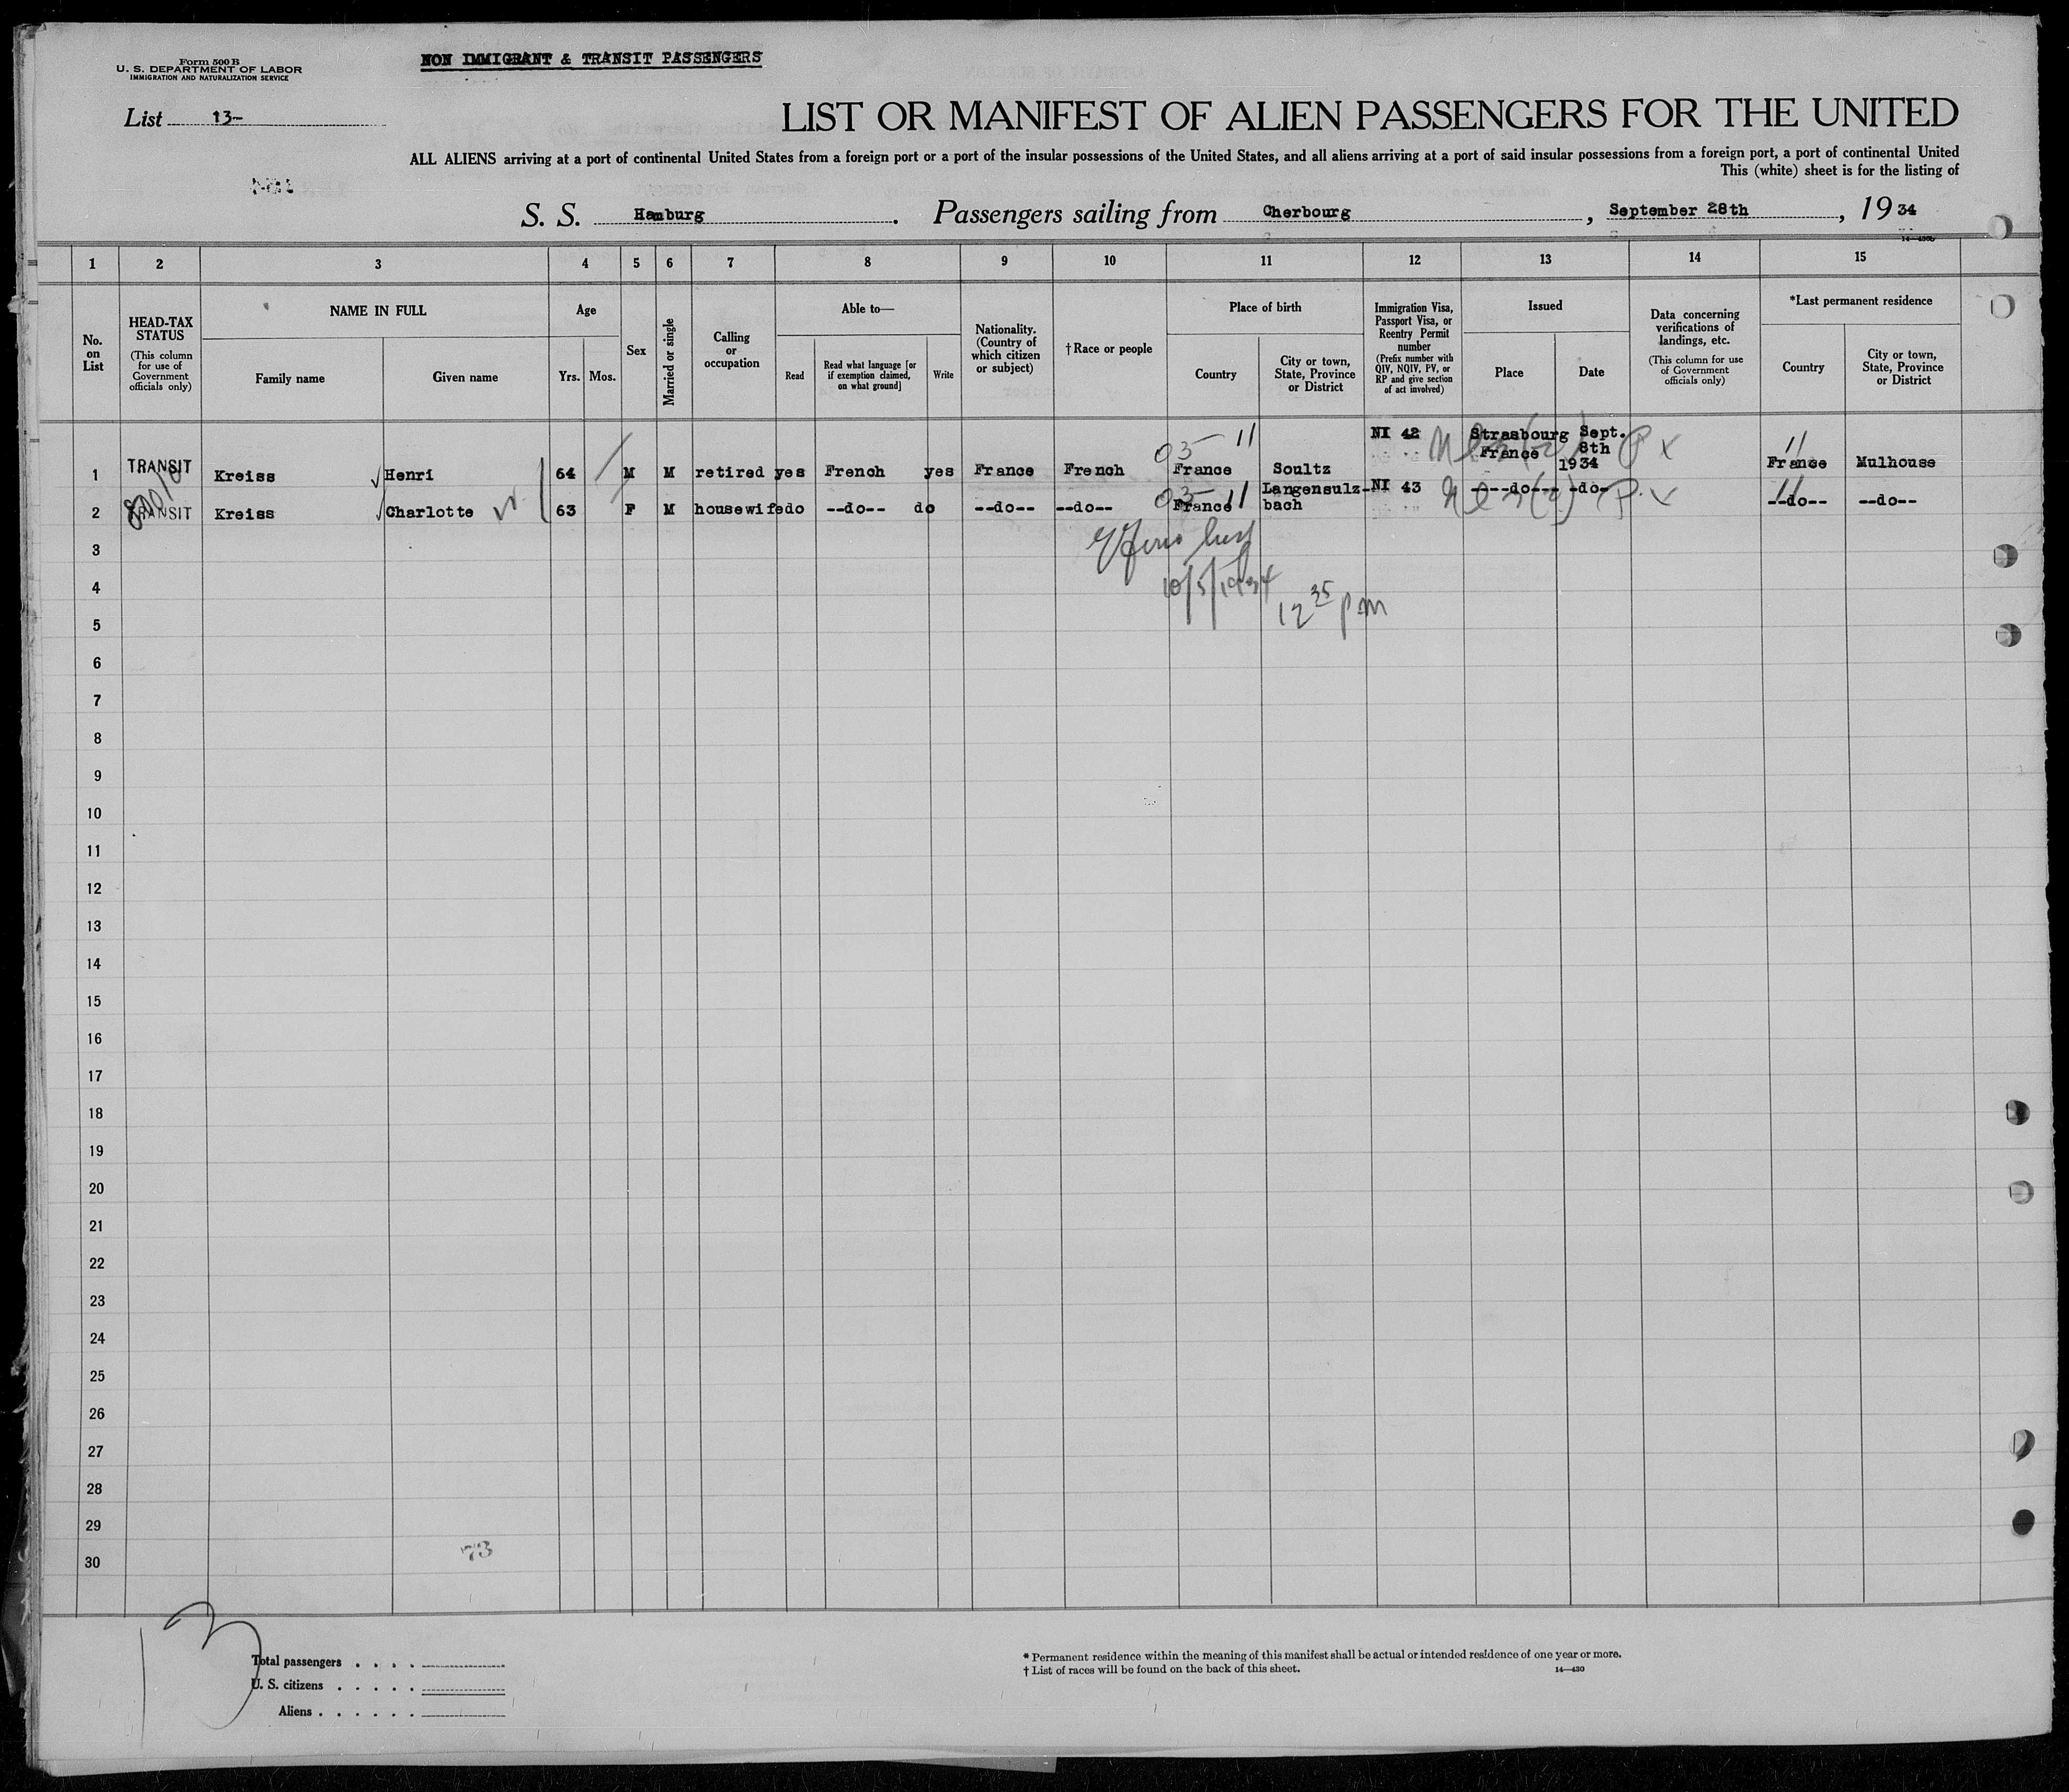 Form 500 B
U. S. DEPARTMENT OF LABOR
IMMIGRATION AND NATURALIZATION SERVICE
NON IMMIGRANT & TRANSIT PASSENGERS
List 13-
LIST OR MANIFEST OF ALIEN PASSENGERS FOR THE UNITED
ALL ALIENS arriving at a port of continental United States from a foreign port or a port of the insular possessions of the United States, and all aliens arriving at a port of said insular possessions from a foreign port, a port of continental United
This (white) sheet is for the listing of
S. S. Hamburg. Passengers sailing from Cherbourg, September 28th, 19 34
14—430b
1 2 3 4 5 6 7 8 9 10 11 12 13 14 15
No. on List
HEAD-TAX STATUS
(This column for use of Government officials only)
NAME IN FULL
Family name
Given name
Age
Yrs. Mos.
Sex
Married or single
Calling or occupation
Able to—
Read
Read what language [or if exemption claimed, on what ground]
Write
Nationality. (Country of which citizen or subject)
† Race or people
Place of birth
Country
City or town, State, Province or District
Immigration Visa, Passport Visa, or Reentry Permit number
(Prefix number with QIV, NQIV, PV, or RP and give section of act involved)
Issued
Place
Date
Data concerning verifications of landings, etc.
(This column for use of Government officials only)
*Last permanent residence
Country
City or town, State, Province or District
03 11
1 TRANSIT Kreiss Henri 64 M M retired yes French yes France French France Soultz NI 42 Strasbourg France Sept. 8th 1934 P x 11 France Mulhouse
03 11
2 TRANSIT Kreiss Charlotte 63 F M housewife do --do-- do --do-- --do-- France Langensulz-bach NI 43 ----do--- -do- P x 11 --do-- --do--
3
4 10/5/1934
5 12 35 pm
6
7
8
9
10
11
12
13
14
15
16
17
18
19
20
21
22
23
24
25
26
27
28
29
30
73
13
Total passengers . . . .
U. S. citizens . . . . .
Aliens . . . . . .
* Permanent residence within the meaning of this manifest shall be actual or intended residence of one year or more.
† List of races will be found on the back of this sheet.
14—430